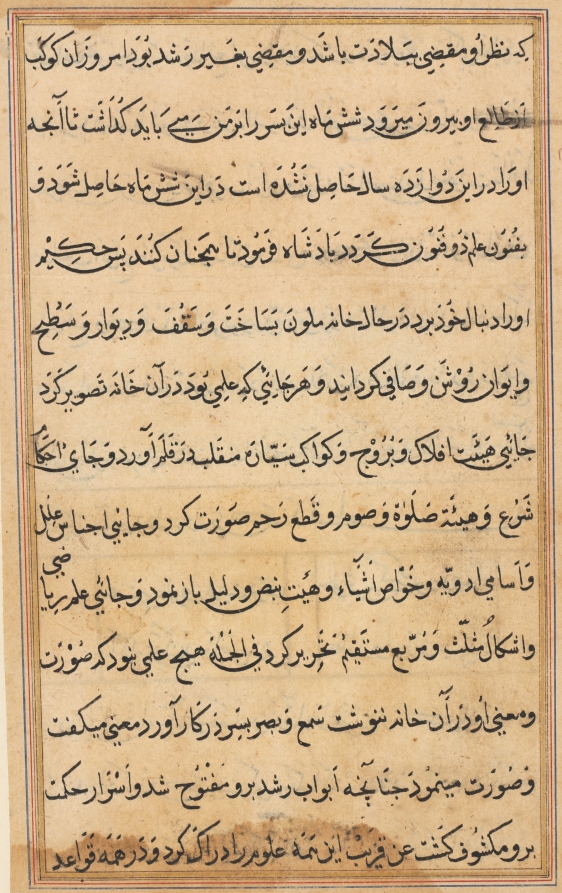 که نظر او مقتضی بلادت باشد و مقتضی بغیر رشد بود امروز آن کوکب
از طالع او بیرون میرود شش ماه این پسر را بر من می باید کذاشت تا آنجه
او را در این دوازده سال حاصل نشده است در این شش ماه حاصل شود و
بفنون علم ذو فنون کردد بادشاه فرمود تا همجنان کنند بس حکیم
او را دنبال خود برد در حال خانه ملون بساخت و سقف و دیوار و سطح
و ایوان روشن و صافی کردانید و هر جائی که علمی بود در آن خانه تصویر کرد
جائی هیئت افلاک و بروج و کواکب سیاره منقلب در قلم آورد و جای احکام
شرع و هیئة صلوة و صوم و قطع رحم صورت کرد و جائی اجناس علل
و اسامی ادویه و خواص اشیاء و هیئت نبض و دلیل باز نمود و جائی علم ریاضی
و اشکال مثلث و مربع مستقیم تحریر کرد فی الجمله هیج علمی نبود که صورت
و معنی او در آن خانه ننوشت سمع و بصر بسر در کار آورد معنی میکفت
و صورت مینمود جنانجه ابواب رشد برو مفتوح شد و اسرار حکمت
برو مکشوف کشت عن قریب این همه علوم را ادراک کرد و در همه قواعد